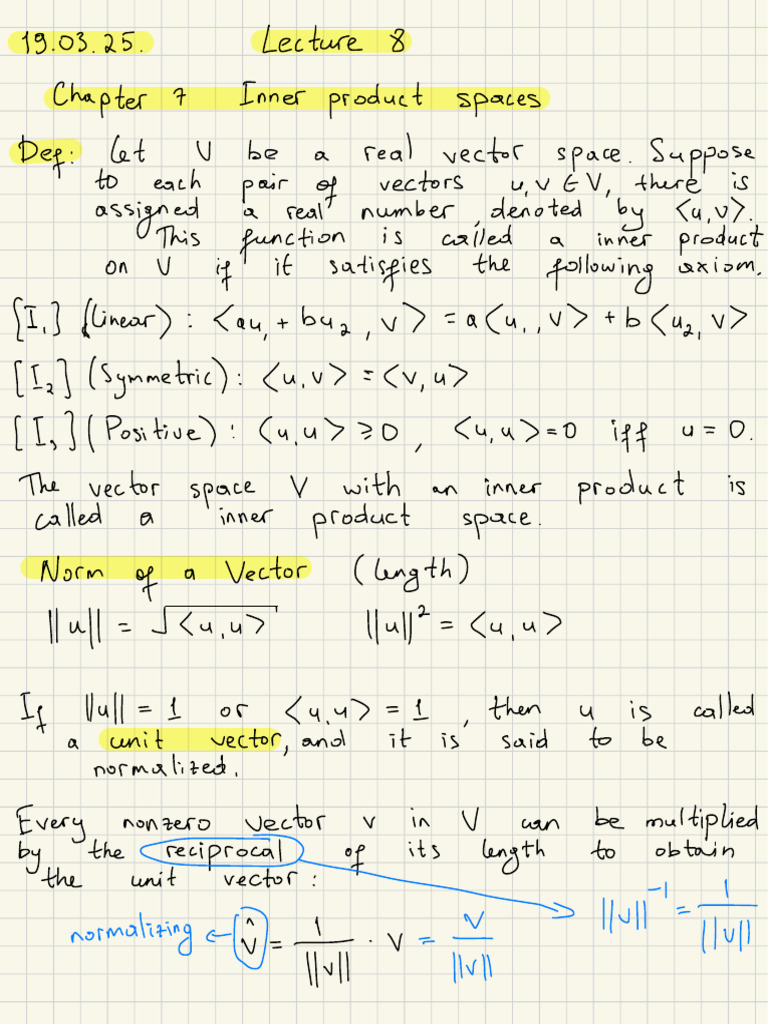 19.03.25. Lecture 8
Chapter 7 Inner product spaces
Def: Let V be a real vector space. Suppose
to each pair of vectors u,v ∈ V, there is
assigned a real number, denoted by <u,v>.
This function is called a inner product
on V if it satisfies the following axiom.
[I₁] (Linear): <au₁ + bu₂, v> = a<u₁,v> + b<u₂,v>
[I₂] (Symmetric): <u,v> = <v,u>
[I₃] (Positive): <u,u> ≥ 0, <u,u> = 0 iff u = 0.
The vector space V with an inner product is
called a inner product space.
Norm of a Vector (length)
||u|| = √<u,u> ||u||² = <u,u>
If ||u|| = 1 or <u,u> = 1, then u is called
a unit vector, and it is said to be
normalized.
Every nonzero vector v in V can be multiplied
by the reciprocal of its length to obtain
the unit vector:
normalizing ← v̂ = 1/||v|| · v = v/||v|| → ||v||⁻¹ = 1/||v||